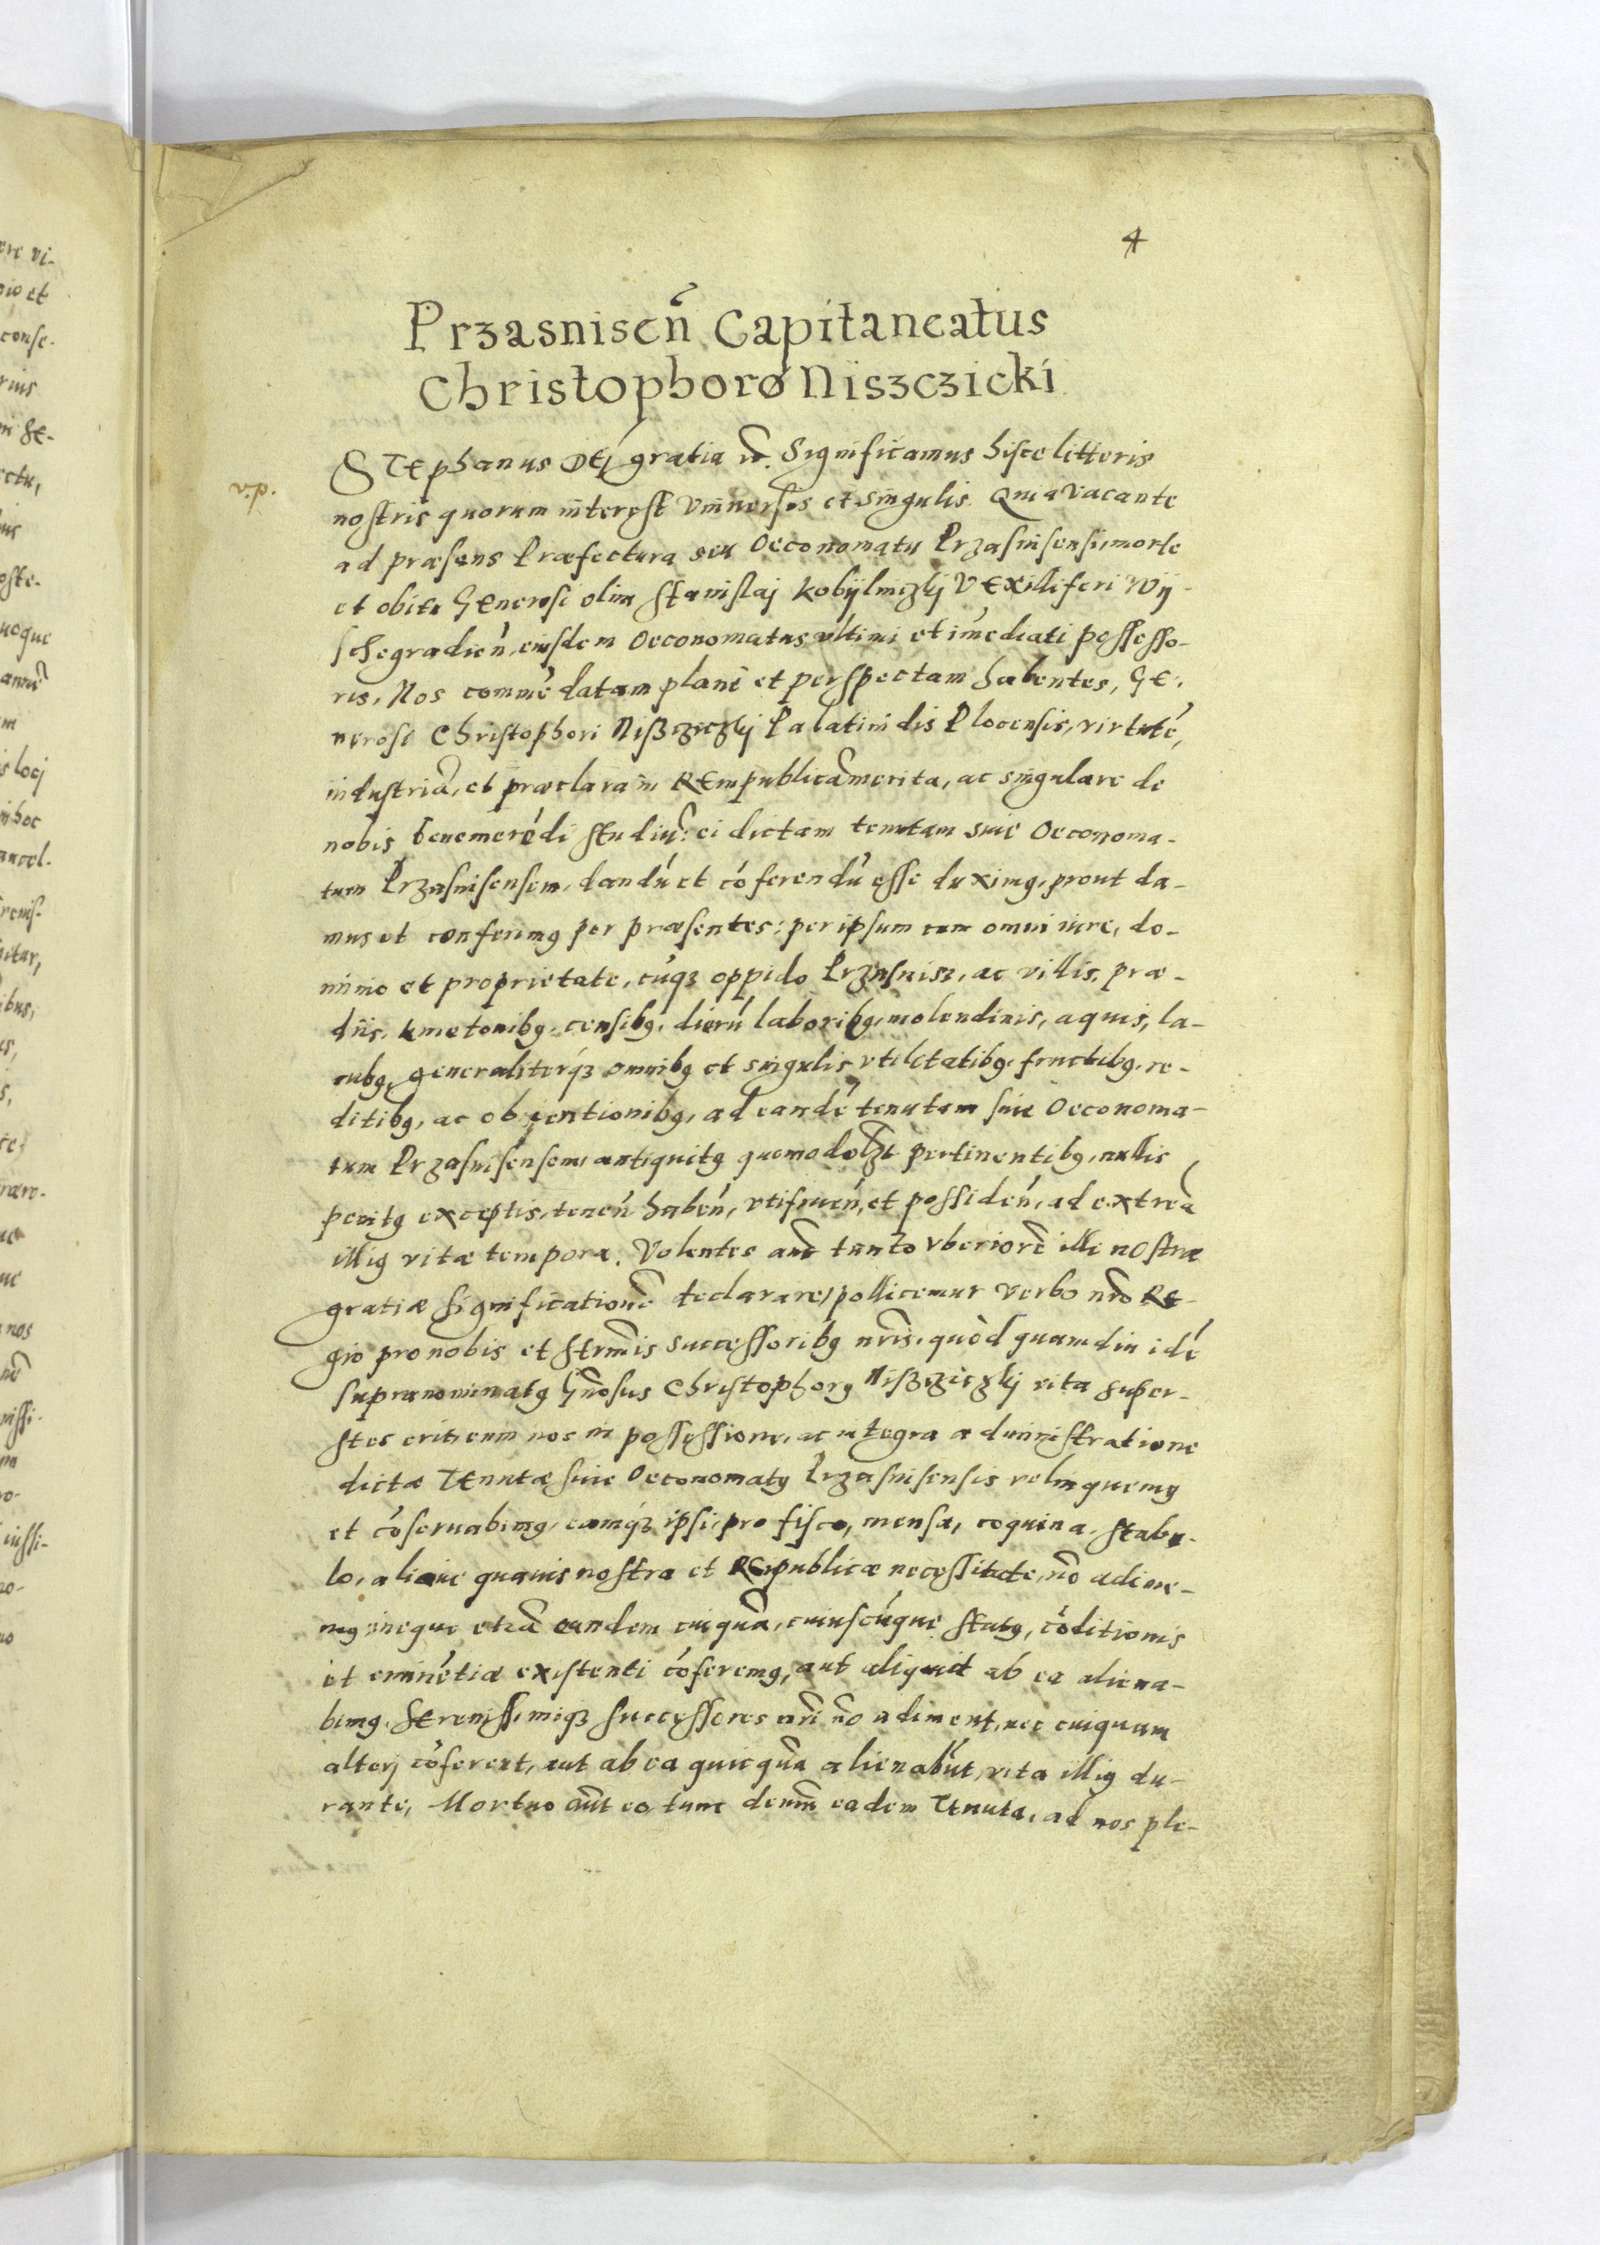 4
Przasniscń Capitaneatus
Christophorø Niszczicki
v.p.
Stephanus Dej gratia ꝛc̃. Significamus hisce litteris
nostris quorum interest Vniuersis et singulis. Quia Vacante
ad præsens Præfectura seu Oeconomatu Przasnisensi, morte
et obitu Generosi olim Stanislaj Kobÿlniczkij Vexilliferi Wÿ-
schegradień, eiusdem Oeconomatus vltimi et im̃ediati possesso-
ris, Nos commẽdatam planè et perspectam habentes, Ge-
nerosi Christophori Niszcziczkij Palatinidis Plocensis, virtutẽ,
industriã, et præclara in Rempublicã merita, ac singulare de
nobis benemerẽdi studiũ: ei dictam tenutam siue Oeconoma-
tum Przasnisensem, dandũ et cõferendũ esse duximꝰ, prout da-
mus et conferimꝰ per præsentes: per ipsum cum omni iure, do-
minio et proprietate, cũqꝫ oppido Przasnisz, ac villis, præ-
diis, kmetonibꝰ, censibꝰ, dierũ laboribꝰ, molendinis, aquis, la-
cubꝰ, generaliterqꝫ omnibꝰ et singulis vtilitatibꝰ, fructibꝰ, re-
ditibꝰ, ac obuentionibꝰ, ad eandẽ tenutam siue Oeconoma-
tum Przasnisensem, antiquitꝰ quomodolꝫt pertinentibꝰ, nullis
penitꝰ exceptis, teneń habeń, vtifrueń, et possideń, ad extrea
illiꝰ vitæ tempora. Volentes aũt tanto vberiorẽ illi nostræ
gratiæ significationẽ declarare, pollicemur verbo nr̃o Re-
gio pro nobis et Sermis successoribꝰ nr̃is, quòd quamdiu idẽ
supranominatꝰ Gñosus Christophorꝰ Niszcziczkij vita super-
stes erit, eum nos in possessione, ac integra administratione
dictæ Tenutæ siue Oeconomatꝰ Przasnisensis relinquemꝰ
et cõseruabimꝰ, eamqꝫ ipsi, pro fisco, mensa, coquina, stabu-
lo, aliaue quauis nostra et Reipublicæ necessitate, nõ adime-
mꝰ neque etiã eandem cuiquã, cuiuscũque statꝰ, cõditionis
et eminẽtiæ existenti cõferemꝰ, aut aliquid ab ea aliena-
bimꝰ. Serenissimiqꝫ successores nr̃i nõ adiment, nec cuiquam
alterj cõferent, aut ab ea quicquã alienabũt, vita illiꝰ du-
rante, Mortuo aũt eo tunc demũ eadem Tenuta, ad nos ple-